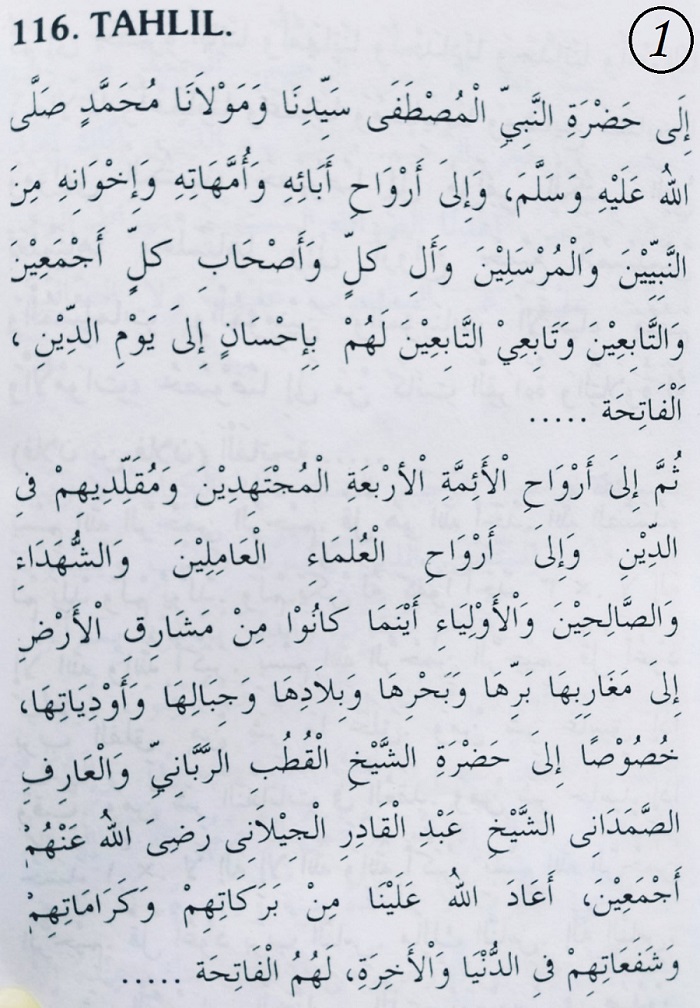 116. TAHLIL.
1
إِلَى حَضْرَةِ النَّبِيِّ الْمُصْطَفَى سَيِّدِنَا وَمَوْلَانَا مُحَمَّدٍ صَلَّى
اللهُ عَلَيْهِ وَسَلَّمَ، وَإِلىَ أَرْوَاحِ أَبَائِهِ وَأُمَّهَاتِهِ وَإِخْوَانِهِ مِنَ
النَّبِيِّيْنَ وَالْمُرْسَلِيْنَ وَأَل كلٍّ وَأَصْحَابِ كلٍّ أَجْمَعِيْنَ
وَالتَّابِعِيْنَ وَتَابِعِيْ التَّابِعِيْنَ لَهُمْ بِإِحسَانٍ إِلىَ يَوْمِ الدِّيْنِ ،
اَلْفَاتِحَة .....
ثُمَّ إِلىَ أَرْوَاحِ الْأَئِمَّةِ الْأَرْبعَةِ الْمُجْتَهدِيْنَ وَمُقَلِّدِيهِمْ فىِ
الدِّيْنِ وَإِلى أَرْوَاحِ الْعُلَمَاءِ الْعَامِلِيْنَ وَالشُّهَدَاءِ
وَالصَّالِحِيْنَ وَالْأَوْلِيَاءِ أَيْنَمَا كانُوْا مِنْ مَشَارِقِ الْأَرْضِ
إِلىَ مَغَارِبِهَا بَرِّهَا وَبَحْرِهَا وَبِلَادِهَا وَجِبالِهَا وَأَوْدِيَاتِهَا،
خُصُوْصًا إِلىَ حَضْرَةِ الشَّيْخِ الْقُطُب الرَّبَّانِيِّ وَالْعَارِفِ
الصَّمَدَانى الشَّيْخِ عَبْدِ الْقَادِرِ الْجيْلَانى رَضِىَ اللهُ عَنْهُمْ
أَجْمَعِيْنَ، أَعَادَ اللهُ عَلَيْنَا مِنْ بَرَكاتِهِمْ وَكَرَامَاتِهِمْ
وَشَفَعَاتِهِمْ فىِ الدُّنْيَا وَالْأَخِرَةِ، لَهُمُ الْفَاتِحَة .....